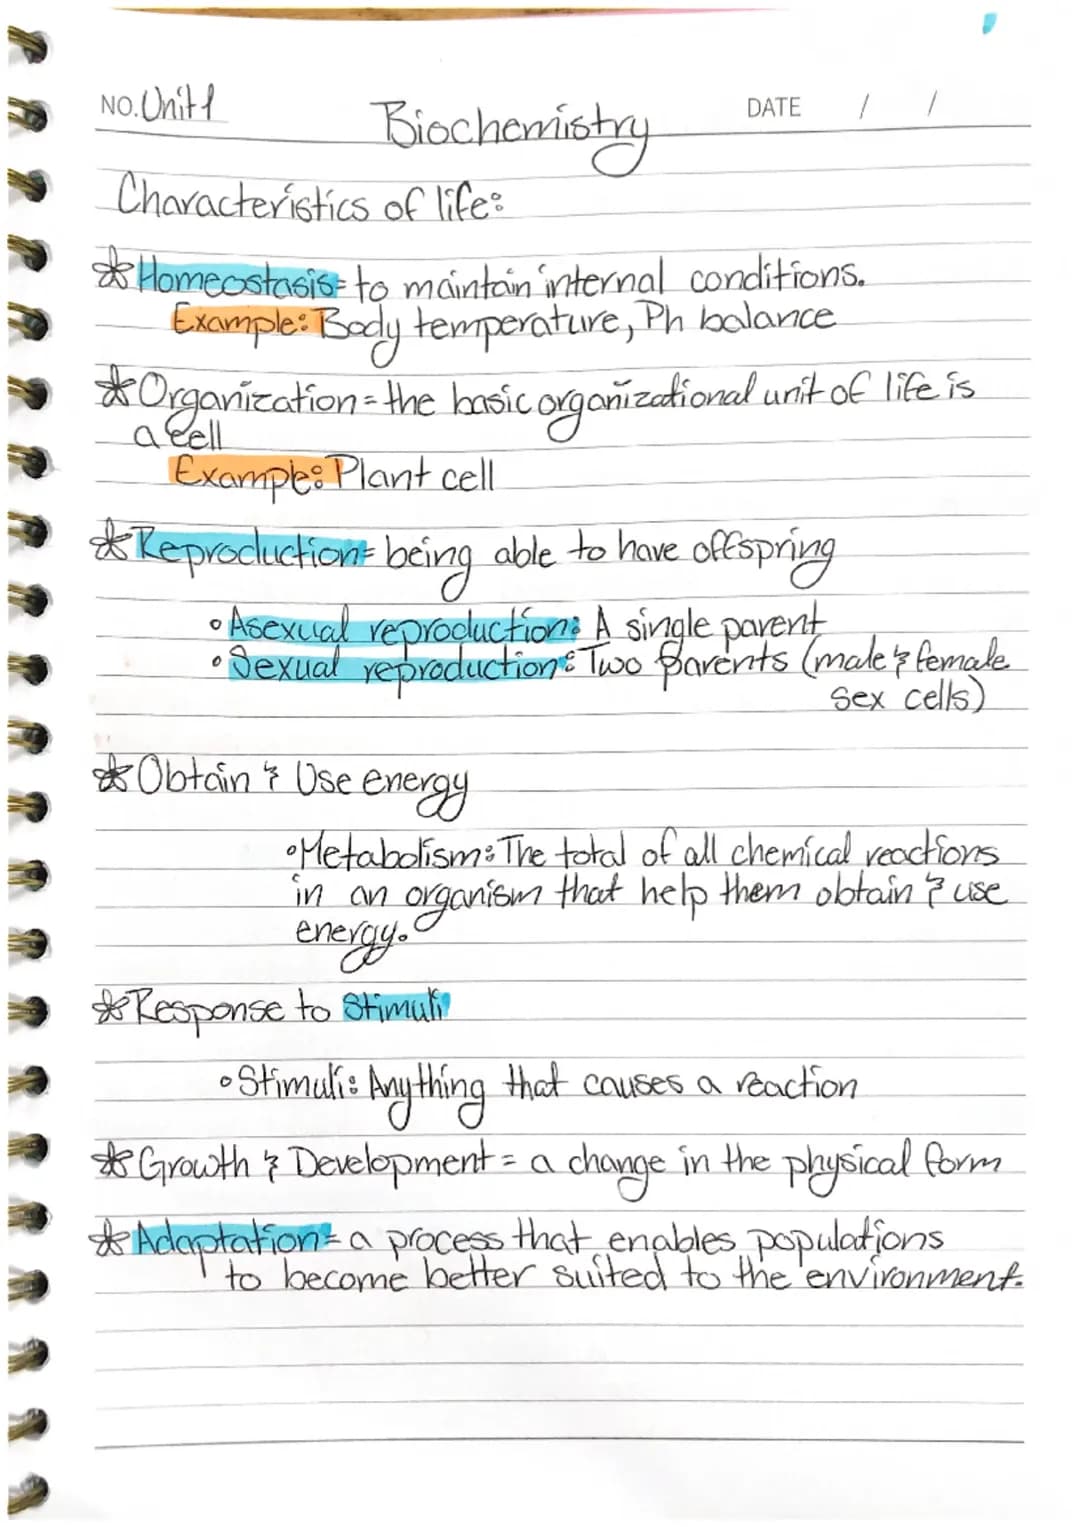 NO. Unit 1
Biochemistry
DATE / /
Characteristics of life:
Homeostasis= to maintain internal conditions.
Example: Body temperature, Ph balance
Organization= the basic organizational unit of life is
a cell
Example: Plant cell
Reproduction= being able to have offspring
• Asexual reproduction: A single parent
• Sexual reproduction: Two parents (male & female
sex cells)
Obtain & Use energy
• Metabolism: The total of all chemical reactions
in an organism that help them obtain & use
energy.
Response to Stimuli
• Stimuli: Anything that causes a reaction
Growth & Development= a change in the physical form
Adaptation= a process that enables populations
to become better suited to the environment.